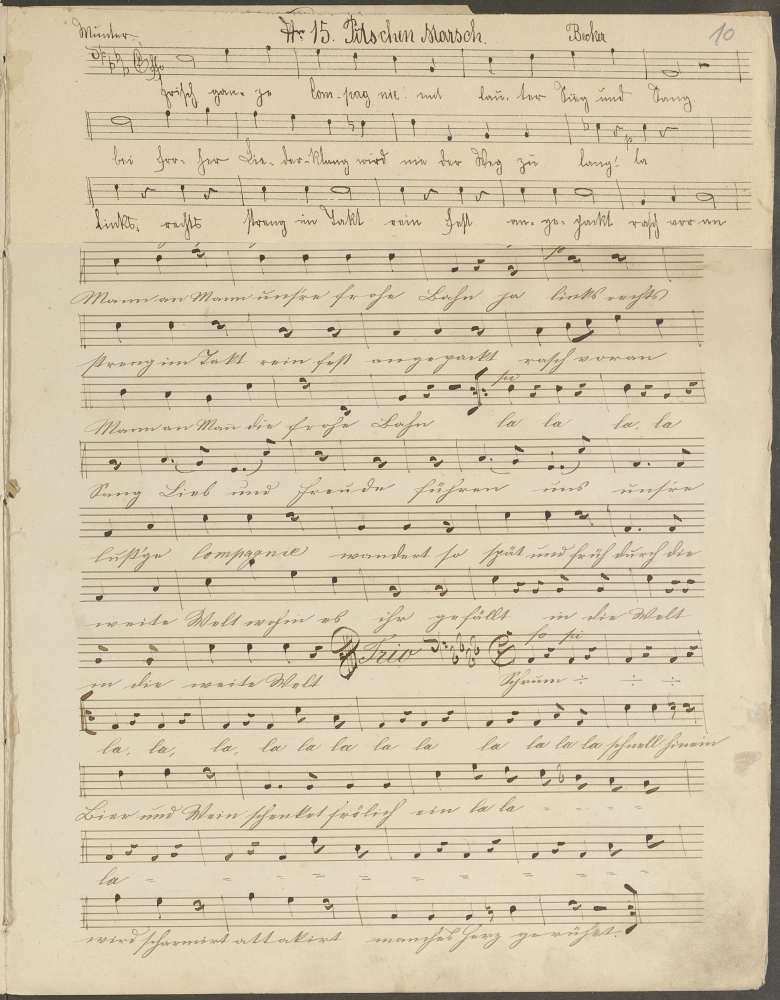 Munter. Nr 15. Pitschen Marsch. Becker 10
frisch gan-ze Com-pag-nie mit lau-ter Sing und Sang
bei fro-her Lie-der-Klang wird nie der Weg zu lang! la
links, rechts streng im Takt rein fest an-ge-packt rasch vor an
Mann an Mann unsre frohe Bahn ja links rechts
streng im Takt rein fest angepackt rasch voran
Mann an Man̄ die frohe Bahn la la la la
Sang Lieb und Freude führen uns unsre
lustge Compagnie wandert so spät und früh durch die
weite Welt wohin es ihr gefällt in die Welt
in die weite Welt Trio Schrum ÷ ÷ ÷
la, la, la, la la la la la la la la la schnell hinein
Bier und Wein schenket frölich ein la la - - - -
la = = = = = = = = =
wird scharmirt attakirt manches Herz gerührt.